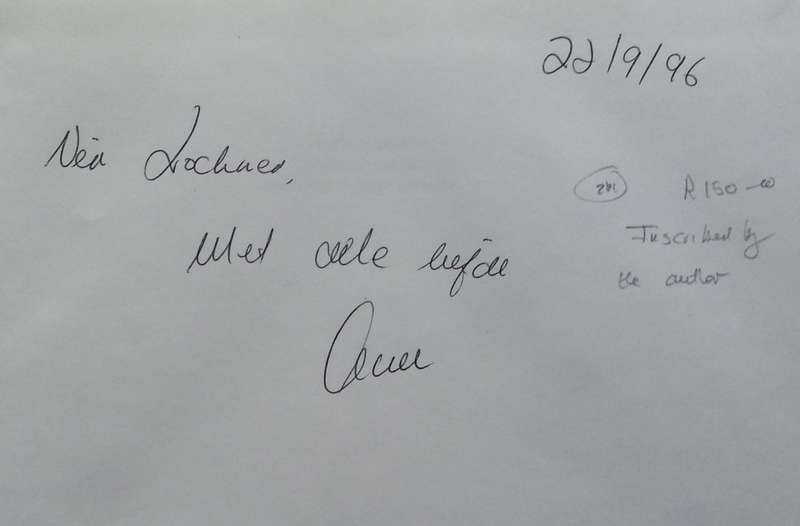 22/9/96
Vir Lochner,
Met alle liefde
R150-00
Inscribed by
the author